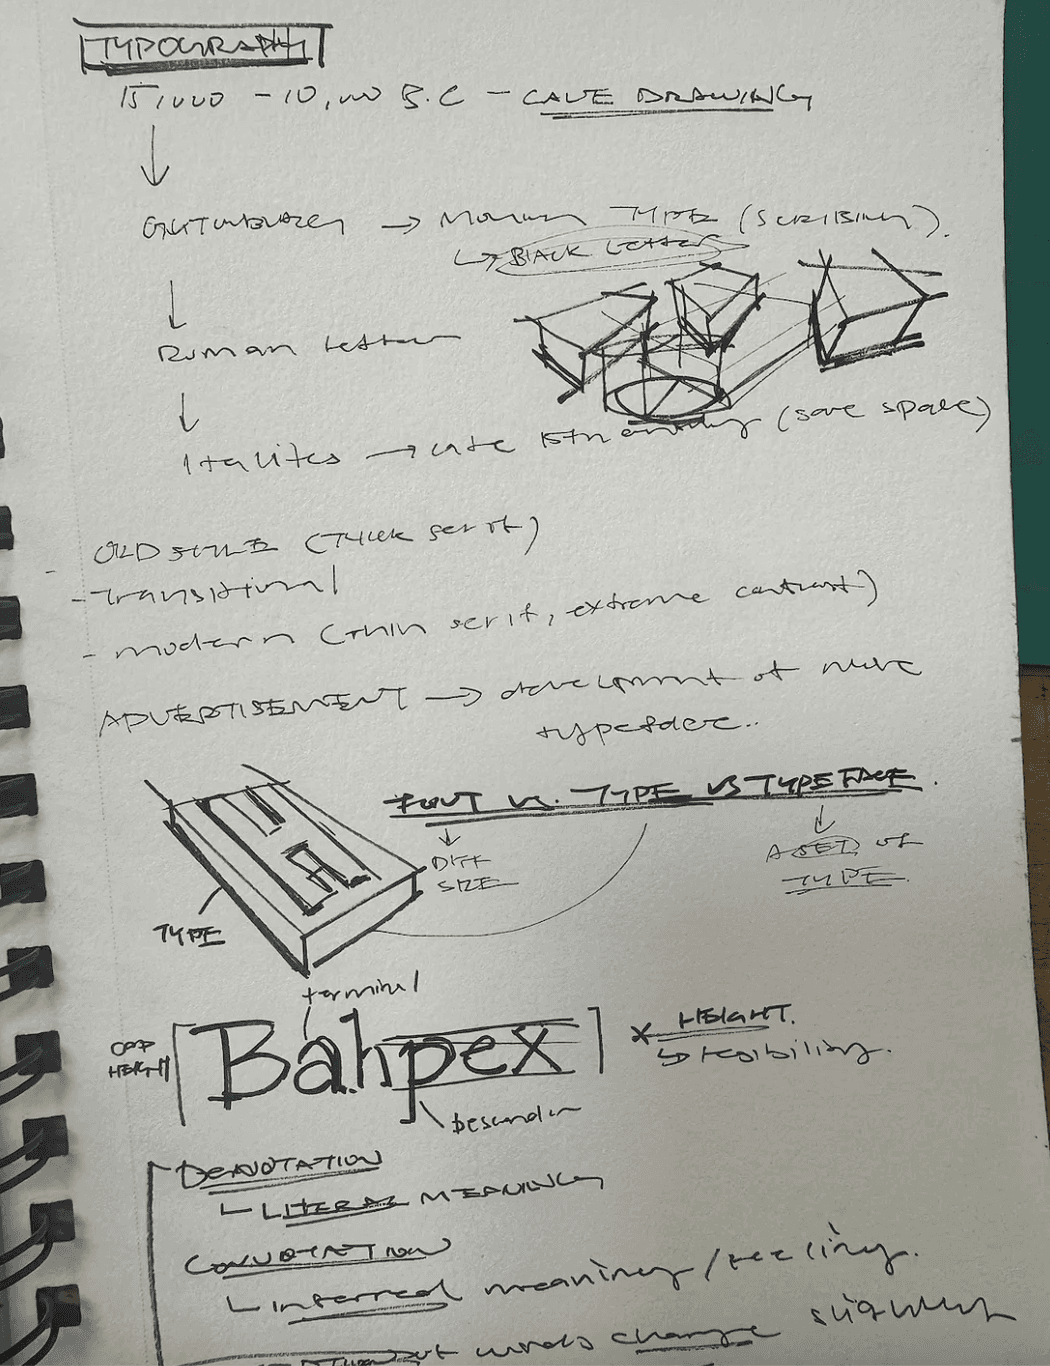 TYPOGRAPHY
15,000 - 10,000 B.C - CAVE DRAWING
↓
GUTENBERG → TYPE (SCRIBING).
↳ BLACK LETTER
↓
Roman letter
↓
Italites → late 15th (save space)
- OLD STYLE (THICK serif)
- Transitional
- modern (thin serif, extreme contrast)
ADVERTISEMENT → development of more
typeface..
FONT VS. TYPE VS TYPEFACE.
↓ DIFF SIZE
↓ A SET OF TYPE
TYPE
terminal
CAP HEIGHT
Bahpex
X HEIGHT.
↳ legibility.
Descender
DENOTATION
LITERAL MEANING
CONNOTATION
inferred meaning/feeling.
words change slightly